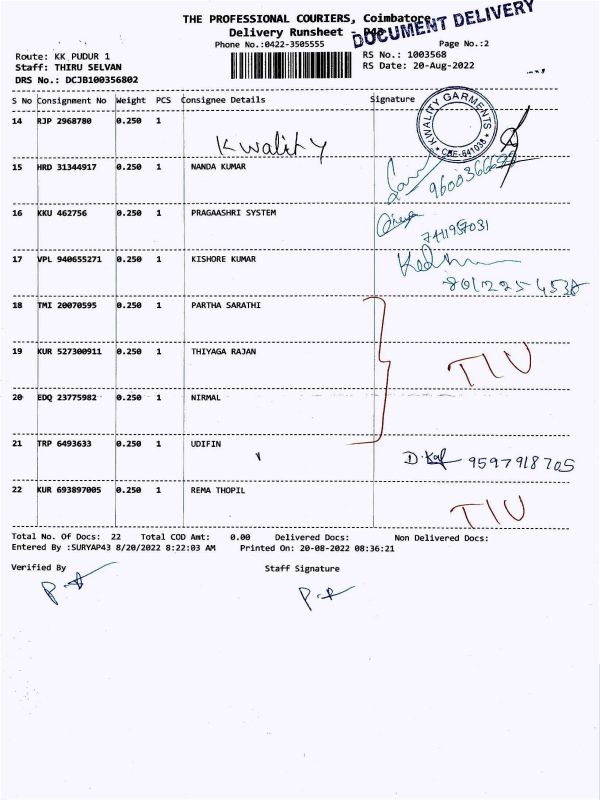 THE PROFESSIONAL COURIERS, Coimbatore.
DOCUMENT DELIVERY
Delivery Runsheet - P43
Phone No.:0422-3505555 Page No.:2
Route: KK PUDUR 1 RS No.: 1003568
Staff: THIRU SELVAN RS Date: 20-Aug-2022
DRS No.: DCJB100356802
S No Consignment No Weight PCS Consignee Details Signature
14 RJP 2968780 0.250 1
Kwality
KWALITY GARMENTS * CBE-641038 *
15 HRD 31344917 0.250 1 NANDA KUMAR
16 KKU 462756 0.250 1 PRAGAASHRI SYSTEM
17 VPL 940655271 0.250 1 KISHORE KUMAR
8012254538
18 TMI 20070595 0.250 1 PARTHA SARATHI
19 KUR 527300911 0.250 1 THIYAGA RAJAN
20 EDQ 23775982 0.250 1 NIRMAL
21 TRP 6493633 0.250 1 UDIFIN
9597918705
22 KUR 693897005 0.250 1 REMA THOPIL
Total No. Of Docs: 22 Total COD Amt: 0.00 Delivered Docs: Non Delivered Docs:
Entered By :SURYAP43 8/20/2022 8:22:03 AM Printed On: 20-08-2022 08:36:21
Verified By Staff Signature